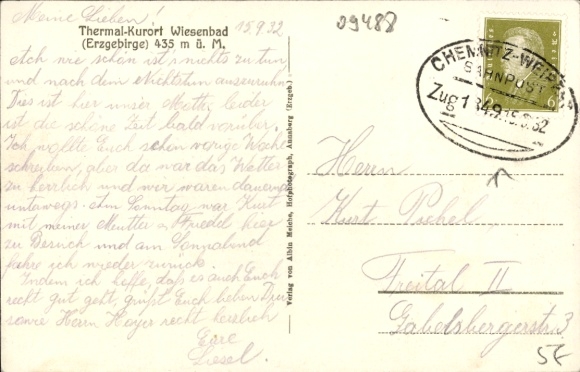 Meine Lieben!
15.9.32
09488
Thermal-Kurort Wiesenbad
(Erzgebirge) 435 m ü. M.
Ach wie schön ist's nichts zu tun
und nach dem Nichtstun auszuruhn.
Dies ist hier unser Motto, leider
ist die schöne Zeit bald vorüber.
Ich wollte Euch schon vorige Woche
schreiben, aber da war das Wetter
zu herrlich und wir waren dauernd
unterwegs. Am Sonntag war Kurt
mit meiner Mutter u. Friedel hier
zu Besuch und am Sonnabend
fahre ich wieder zurück.
Indem ich hoffe, daß es auch Euch
recht gut geht, grüßt Euch lieben Drei
sowie Herrn Hoyer recht herzlich
Eure
Liesel.
Verlag von Albin Meiche, Hofphotograph, Annaberg (Erzgeb.)
CHEMNITZ-WEIPERT
BAHNPOST
Zug 1849 15.9.32
6
Herrn
Kurt Pschel,
Freital II
Gabelsbergerstr. 3
5E